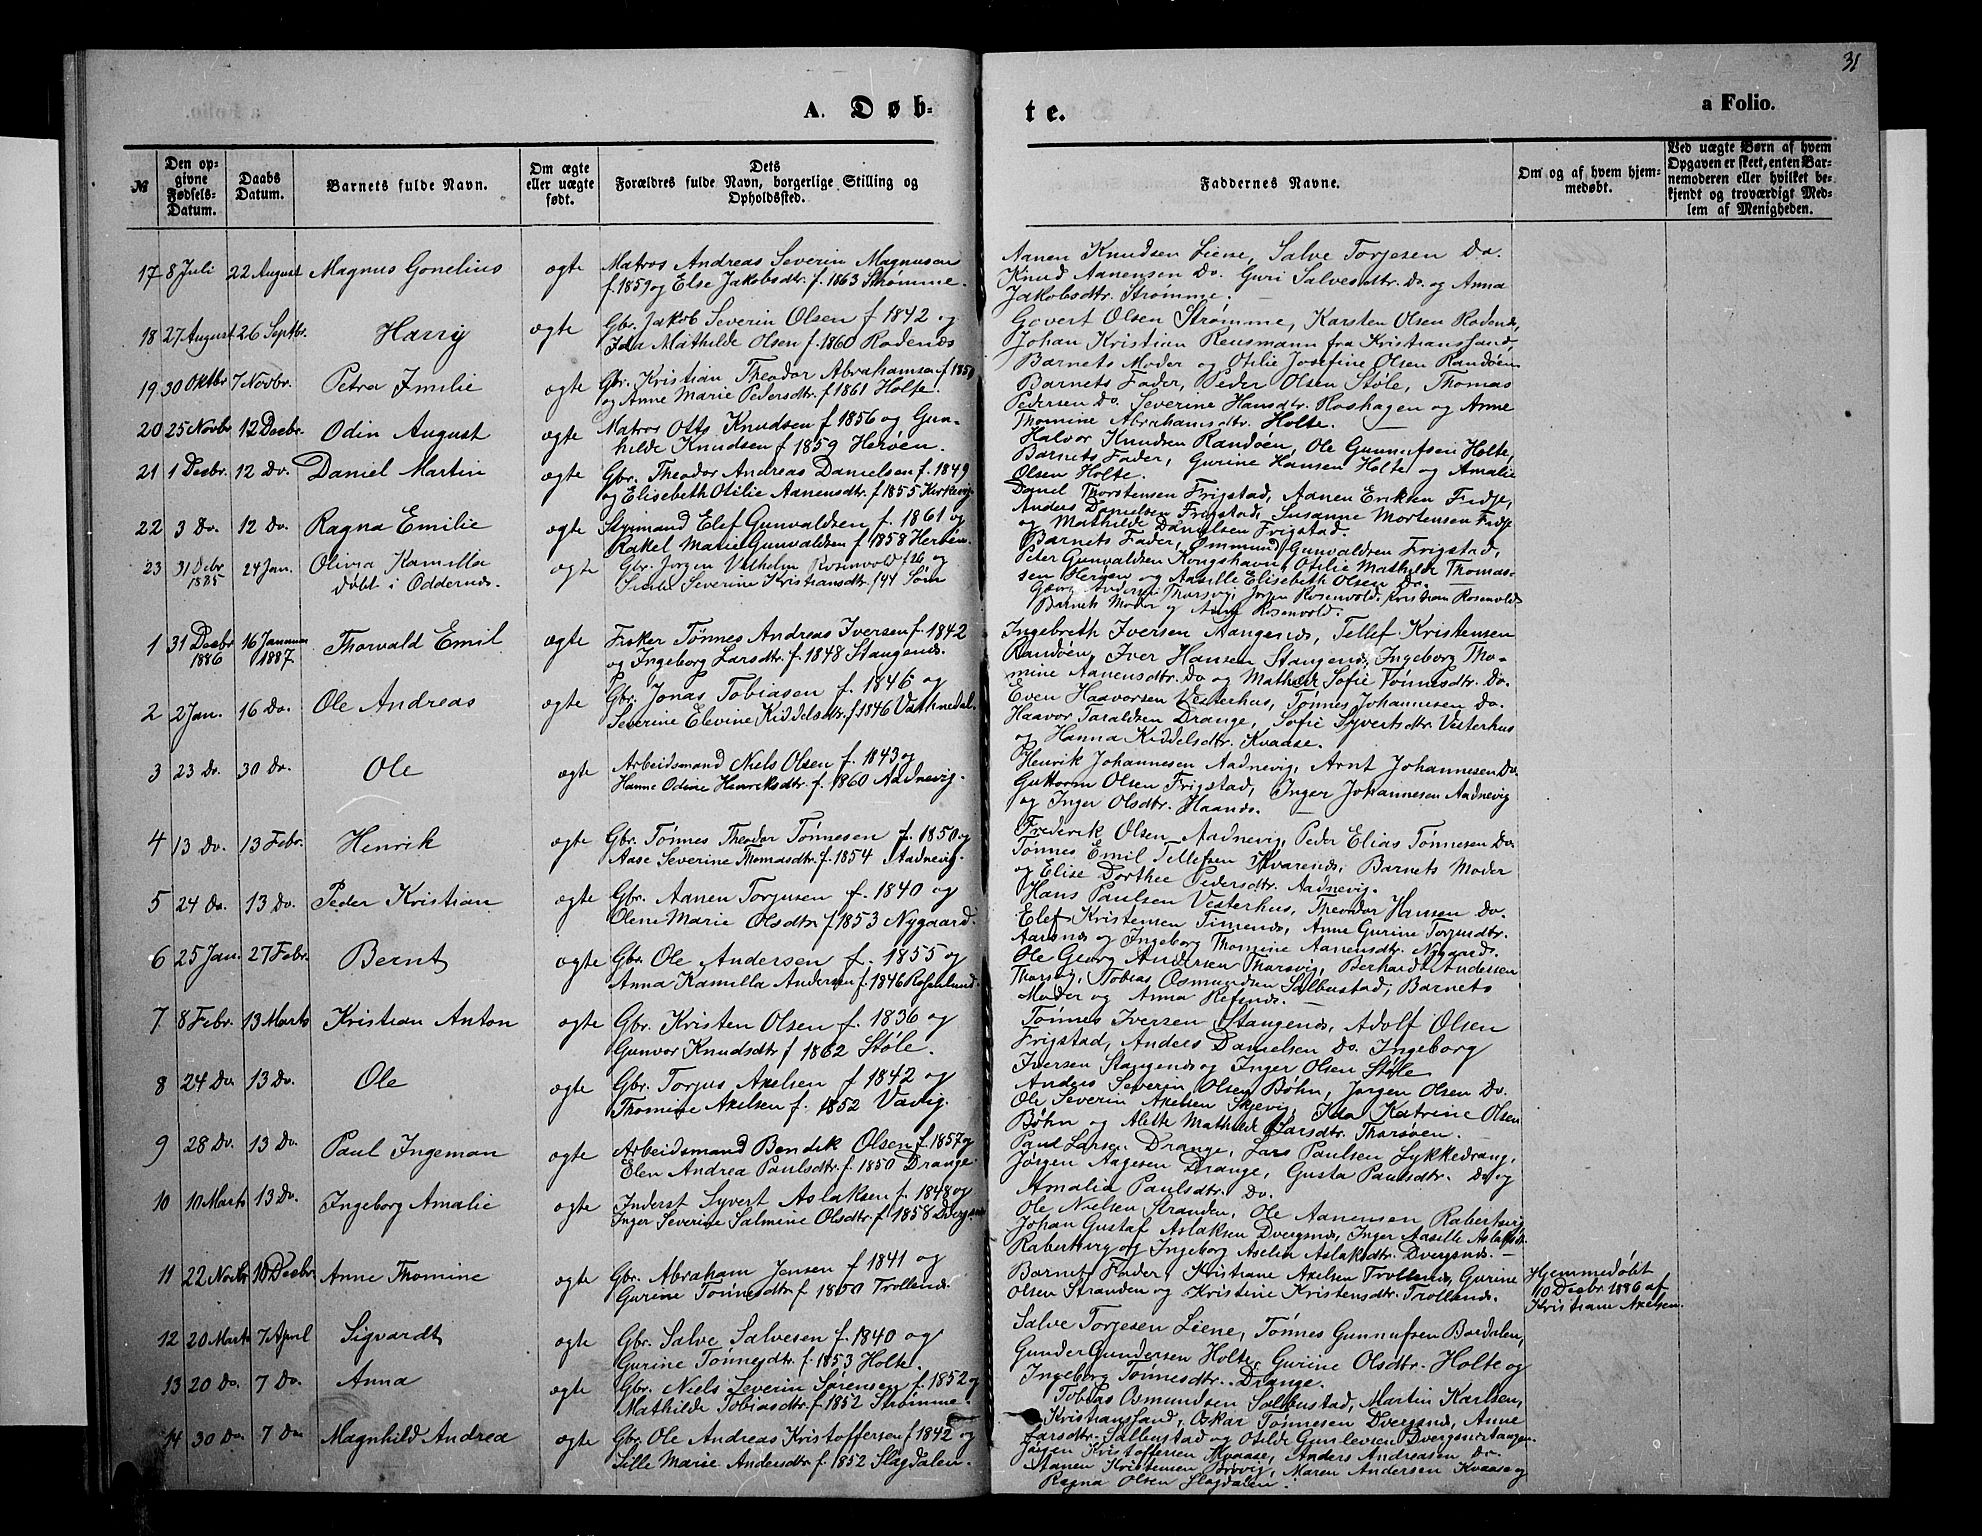 31
A. Døb-
te.
a Folio.
№
Den op-
givne
Fødsels-
Datum.
Daabs
Datum.
Barnets fulde Navn.
Om ægte
eller uægte
født.
Dets
Forældres fulde Navn, borgerlige Stilling og
Opholdssted.
Faddernes Navne.
Om og af hvem hjem-
medøbt.
Ved uægte Børn af hvem
Opgaven er skeet, enten Bar-
nemoderen eller hvilket be-
kjendt og troværdigt Med-
lem af Menigheden.
17 8 Juli 22 August Magnus Gonelius ægte Matros Andreas Severin Magnusen
f. 1859 og Else Jakobsdtr. f. 1863 Strømme.
Aanen Knudsen Liene, Salve Torjesen Do.
Knud Aanensen Do. Guri Salvesdtr. Do. og Anna
Jakobsdtr. Strømme.
18 27 August 26 Septbr. Harry ægte Gbr. Jakob Severin Olsen f 1842 og
Ida Mathilde Olsen f. 1860 Rodenæs
Govert Olsen Strømme, Karsten Olsen Rodenæs,
Johan Kristian Reusmann fra Kristianssand,
Barnets Moder og Otilie Josefine Olsen Randøen
19 30 Oktbr 7 Novbr. Petra Emilie ægte Gbr. Kristian Theodor Abrahamsen f 1859
og Anne Marie Pedersdtr. f 1861 Holte.
Barnets Fader, Peder Olsen Støle, Thomas
Pedersen Do. Severine Hansdtr. Roshagen og Anne
Thomine Abrahamsdtr. Holte.
20 25 Novbr 12 Decbr. Odin August ægte Matros Otto Knudsen f 1856 og Gun-
hilde Knudsen f 1859 Herøen.
Halvor Knudsen Randøen, Ole Gunnufsen Holte,
Barnets Fader, Gurine Hansen Holte og Amalie
Olsen Holte.
21 1 Decbr. 12 Do. Daniel Martin ægte Gbr. Theodor Andreas Danielsen f. 1849
og Elisebeth Otilie Aanensdtr. f 1855 Kirkevig
Daniel Thorstensen Frigstad, Aanen Eriksen Fidje,
Anders Danielsen Frigstad, Susanne Mortensen Fidje
og Mathilde Danielsen Frigstad.
22 3 Do. 12 Do. Ragna Emilie ægte Styrmand Elef Gunvaldsen f. 1861 og
Rakel Marie Gunvaldsen f. 1858 Herøen.
Barnets Fader, Ommund Gunvaldsen Frigstad,
Peter Gunvaldsen Kongshavn, Otilie Mathilde Thomas-
sen Herøen og Aasille Elisebeth Olsen Do.
23 31 Decbr 1885 24 Jan. Olivia Kamilla
døbt i Oddernæs. ægte Gbr. Jørgen Vilhelm Rosenvold f 26 og
Severine Kristiansdtr. f 44 Søm
Georg Andersen Tharsvig, Jørgen Rosenvold, Kristian Rosenvold
Barnets Moder og Anne Rosenvold.
1 31 Decbr 1886 16 Januar 1887. Thorvald Emil ægte Fisker Tønnes Andreas Iversen f. 1842
og Ingeborg Larsdtr. f. 1848 Stangenæs.
Ingebreth Iversen Aangenæs, Tellef Kristensen
Randøen, Iver Hansen Stangenæs, Ingeborg Tho-
mine Aanensdtr. Do og Mathilde Sofie Tønnesdtr. Do.
2 2 Jan. 16 Do. Ole Andreas ægte Gbr. Jonas Tobiasen f. 1846 og
Severine Elevine Kiddelsdtr. f 1846 Vathnedal.
Even Haavorsen Vesterhus, Tønnes Johannesen Do.
Haavor Taraldsen Drange, Sofie Syvertsdtr. Vesterhus
og Hanna Kiddelsdtr. Kvaase.
3 23 Do. 30 Do. Ole ægte Arbeidsmand Niels Olsen f. 1843 og
Hanne Odine Henriksdtr. f. 1860 Aadnevig.
Henrik Johannesen Aadnevig, Arnt Johannesen Do.
Guttorm Olsen Frigstad, Inger Johannesen Aadnevig
og Inger Olsdtr. Haanæs.
4 13 Do. 13 Febr. Henrik ægte Gbr. Tønnes Theodor Tønnesen f. 1850 og
Aase Severine Thomasdtr. f. 1854 Aadnevig.
Frederik Olsen Aadnevig, Peder Elias Tønnesen Do
Tønnes Emil Tellefsen Kvarenæs, Barnets Moder
og Elise Dorthee Pedersdtr. Aadnevig.
5 24 Do. 13 Do. Peder Kristian ægte Gbr. Aanen Torjusen f. 1840 og
Olene Marie Olsdtr. f 1853 Nygaard.
Hans Paulsen Vesterhus, Theodor Hansen Do.
Elef Kristensen Timenæs, Anne Gurine Torjusdtr.
Aarsnæs og Ingeborg Thomine Aanensdtr. Nygaard.
6 25 Jan. 27 Febr. Bernt ægte Gbr. Ole Andersen f. 1855 og
Anna Kamilla Andersen f. 1846 Rosenlund.
Ole Georg Andersen Tharsvig, Berhardt Andersen
Tharsvig, Tobias Osmundsen Salbustad, Barnets
Moder og Anna Refsnæs.
7 8 Febr. 13 Marts Kristian Anton ægte Gbr. Kristen Olsen f. 1836 og
Gunvor Knudsdtr f 1862 Støle.
Tønnes Iversen Stangenæs, Adolf Olsen
Frigstad, Anders Danielsen Do. Ingeborg
Iversen Stangenæs og Inger Olsen Støle
8 24 Do. 13 Do. Ole ægte Gbr. Torjus Axelsen f 1842 og
Thomine Axelsen f. 1852 Vævig.
Anders Severin Olsen Bøhn, Jørgen Olsen Do.
Ole Severin Axelsen Skjevig, Ida Katrine Olsen
Bøhn og Alette Mathilde Larsdtr. Tharsøen.
9 28 Do. 13 Do. Paul Ingeman ægte Arbeidsmand Bendik Olsen f. 1857 og
Elen Andrea Paulsdtr. f. 1850 Drange.
Paul Larsen Drange, Lars Paulsen Lykkedrang,
Jørgen Aagesen Drange, Gusta Paulsdtr. Do. og
Amalia Paulsdtr. Do.
10 10 Marts 13 Do. Ingeborg Amalie ægte Inderst Syvert Aslaksen f. 1848 og
Inger Severine Salmine Olsdtr. f 1858 Dvergsnæs
Ole Nielsen Stranden, Ole Aanensen Rabersvig
Johan Gustaf Aslaksen Dvergsnæs, Inger Aasille Aslaksdtr.
Rabersvig og Ingeborg Aselia Aslaksdtr. Dvergsnæs.
11 22 Novbr 10 Decbr Anne Thomine ægte Gbr. Abraham Jensen f 1841 og
Gurine Tønnesdtr f 1850 Trollenæs
Barnets Fader, Kristiane Axelsen Trollenæs, Gurine
Olsen Stranden og Kristine Kristensdtr. Trollenæs.
Hjemmedøbt
10 Decbr. 1886 af
Kristiane Axelsen.
12 20 Marts 7 April Sigvardt ægte Gbr. Salve Salvesen f. 1840 og
Gurine Tønnesdtr. f. 1853 Holte.
Salve Torjesen Liene, Tønnes Gunnufsen Boedalen,
Gunder Gundersen Holte, Gurine Olsdtr. Holte og
Ingeborg Tønnesdtr. Drange.
13 20 Do. 7 Do. Anna ægte Gbr. Niels Severin Sørensen f. 1852 og
Mathilde Tobiasdtr. f. 1852 Strømme.
Tobias Osmundsen Salbustad, Martin Karlsen,
Kristianssand, Oskar Tønnesen Dvergsnæs, Anne
Larsdtr. Salbustad og Otilde Gunlevsen Dvergsnæstangen.
14 30 Do. 7 Do. Magnhild Andrea ægte Gbr. Ole Andreas Kristoffersen f 1842 og
Sille Marie Andersdtr. f. 1852 Slagdalen.
Jørgen Kristoffersen Kvaase, Anders Andreasen Do.
Stanen Kristensen Brøvig, Maren Andersen Kvaase og
Ragna Olsen Slagdalen.